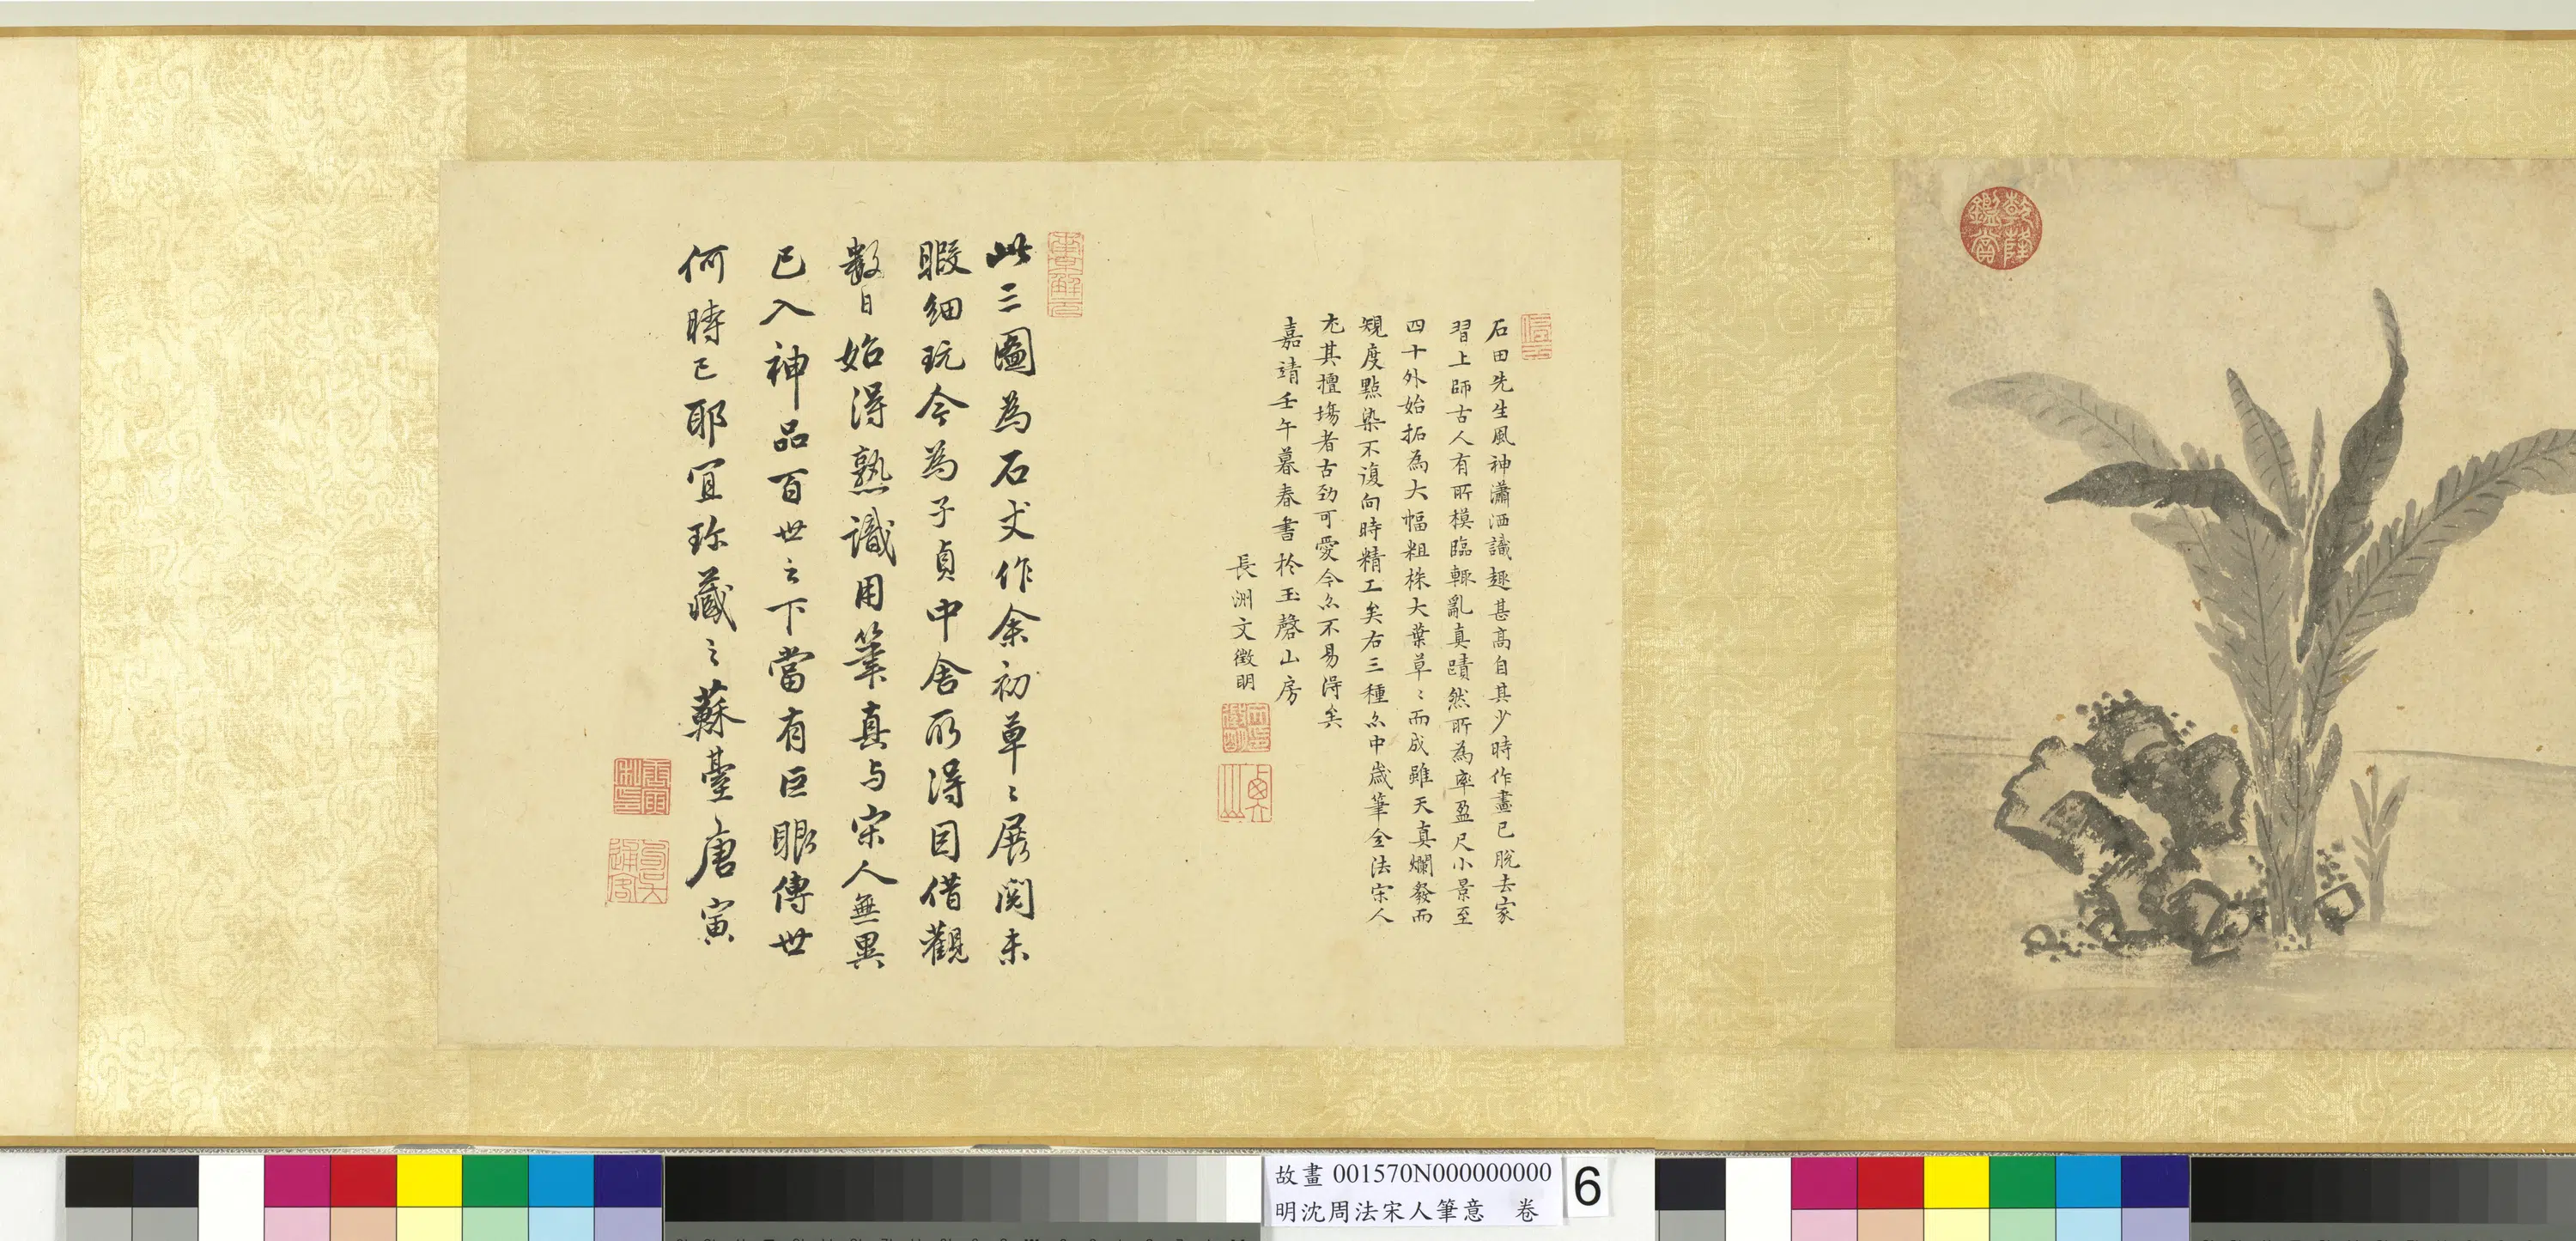 乾隆鑑賞
石田先生風神瀟洒識趣甚高自其少時作畫已脫去家
習上師古人有所模臨輙亂真蹟然所為率盈尺小景至
四十外始拓為大幅粗株大葉草〻而成雖天真爛發而
規度點染不復向時精工矣右三種亦中歲筆全法宋人
尤其擅場者古勁可愛今亦不易得矣
嘉靖壬午暮春書於玉磬山房
長洲文徵明
此三圖為石丈作余初草〻展閱未
暇細玩今為子貞中舍所得因借觀
數日始得熟識用筆真与宋人無異
已入神品百世之下當有巨眼傳世
何時已耶宜珎藏之蘇臺唐寅
故畫 001570N000000000
明沈周法宋人筆意 卷
6